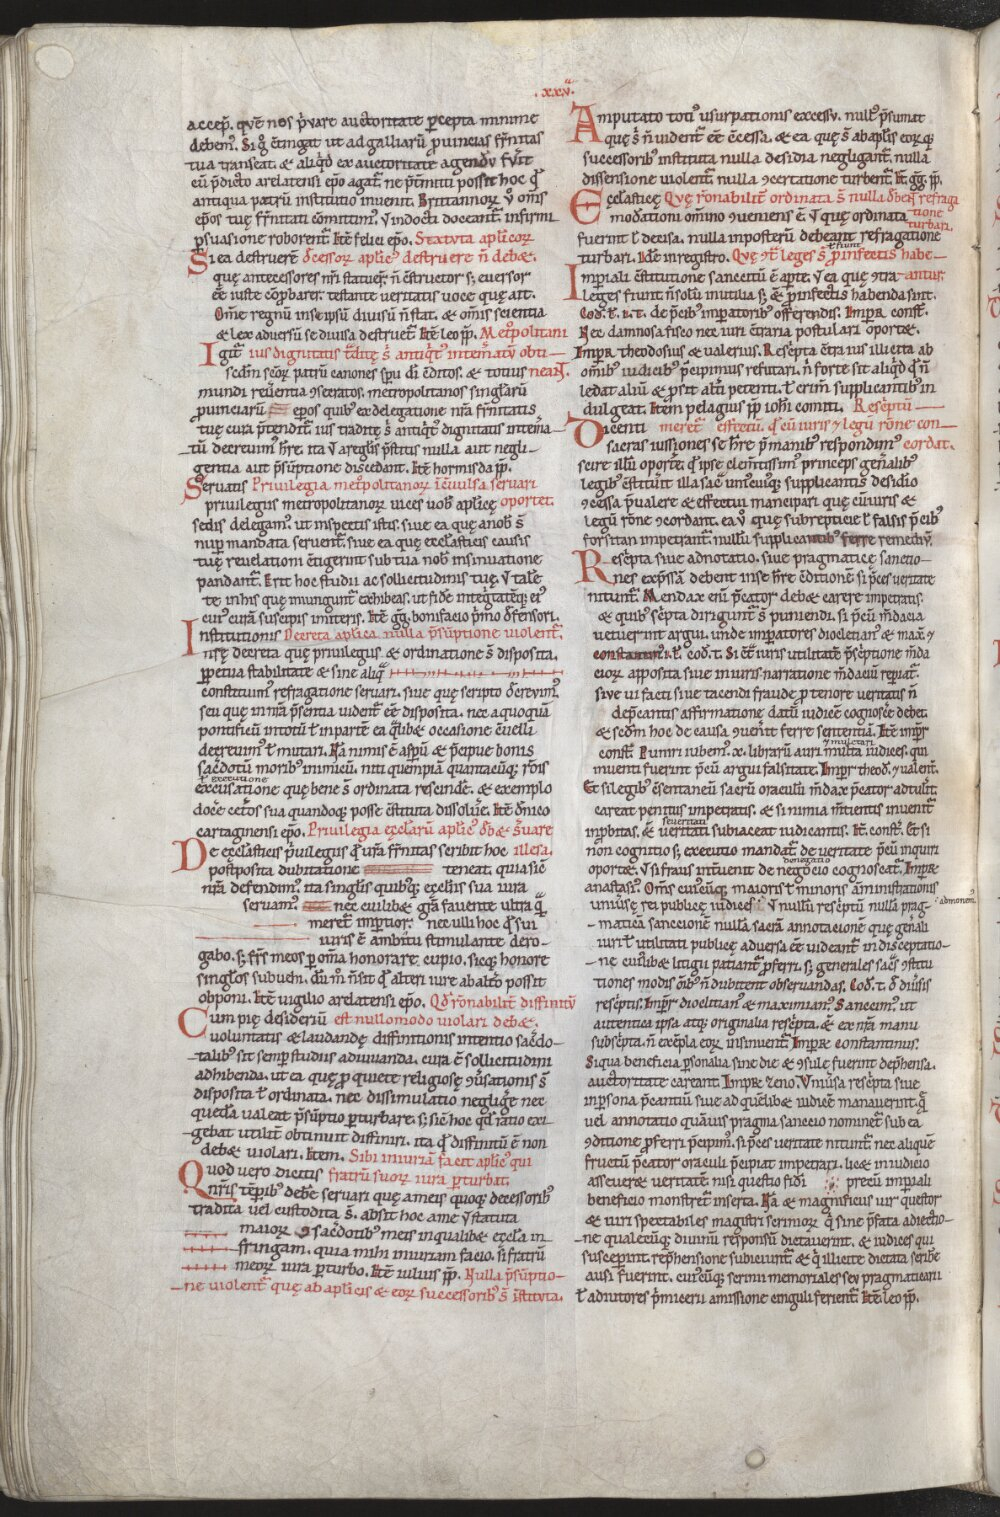 .xxv.
accep̄. quē nos p̄uare auctoritate pcepta minime
debem̄. Si ḡ c̄tingat ut ad galliarū ꝓuincias fr̄nitas
tua transeat. & aliq̇d ex auctoritate agendū fuit
cū p̄dicto arelatensi ep̄o agat. ne p̄t̄mitti possit hoc q̄
antiqua patrū institutio inuenit. Brittannoꝝ ū om̄s
ep̄os tuę fr̄nitati cōmittim̄. Vindocti doceant̄. infirmi
psuasione roborent̄. Itē felici ep̄o. Statuta aplicoꝝ
Si ea destruerē decessoꝝ aplic̄ destruere n̄ debet.
que antecessores nr̄i statuer̄. n̄ c̄structor s; euersor
ēē iuste cōprobarer. testante ueritatis uoce quę ait.
Om̄e regnū in se ipsū diuisū n̄ stat. & om̄is scientia
& lex aduersū se diuisa destruet̄. Itē leo pp̄. Met̓politani
Igit̄ ius dignitatis t̄ditę s̄ antiq̇t̄ intem̄atū obti-
sc̄dm̄ sc̄oꝝ patrū canones spū dī c̄ditos. & totius neaꝝ.
mundi reuentia ɔsecratos. metropolitanos singlarū
ꝓuinciarū ep̄os quib̄ ex delegatione nr̄a fr̄nitatis
tuę cura p̄tendit̄. ius traditę s̄ antiq̇t̄ dignitatis intem̄a-
tū decreuim̄ hr̄e. ita ū a reglis p̄stitis nulla aut negli-
gentia aut p̄sūptione discedant. Itē hormisda pp̄.
Seruatis Priuilegia met̓politanoꝝ īcuulsa seruari
priuilegiis metropolitanoꝝ uices uob̄ aplicę oportet.
sedis delegam̄. ut inspectis istis. siue ea que a nob̄ s̄
nup mandata seruent̄. siue ea que ecclasticis causis
tuę reuelationi c̄tigerint sub tua nob̄ insinuatione
pandant̄. Erit hoc studii ac sollicitudinis tuę. ū tale
te in his que iniungunt̄ exhibeas. ut fidē integtatēq; ei̓
cui̓ curā suscepis imiteris. Itē gḡ. bonifacio p̄mo defensori.
Institutionis Decreta aplica. nulla p̄sūptione uiolent̄.
nr̄ę decreta quę priuilegiis & ordinatione s̄ disposita.
ppetua stabilitate & sine aliq̄
constituim̄ refragatione seruari. siue quę scripto decreuim̄.
seu quę in nr̄a p̄sentia uident̄ ēē disposita. nec a quoquā
pontificū in totū ł in partē ea q̄libet occasione c̄uelli
decreuim̄ ł mutari. Nā nimis ē aspū & p̄cipue bonis
sac̄dotū moribus inimicū. niti quempiā quantacūq; rōis
executione
excusatione quę bene s̄ ordinata rescinde. & exemplo
docē cet̓os sua quandoq; posse c̄stituta dissoluē. Itē dnīco
cartaginensi ep̄o. Priuilegia eccl̄arū aplic̄ debet s̄uare
De eccl̄asticis p̄uilegiis q̄ ur̄a fr̄nitas scribit hoc illesa.
postposita dubitatione teneat. quia sic̄
nr̄a defendim̄. ita singlis quibusq; eccl̄iis sua iura
seruam̄. nec cuilibet gr̄a fauente ultra q̄
meret̄ imptior. nec ulli hoc q̄ sui
iuris ē ambitu stimulante dero-
gabo. s; fr̄s meos p om̄a honorare cupio. sicq; honore
singlos subuehi. dū m̊ n̄ sit q̄ alteri iure ab alto possit
obponi. Itē uigilio arelatensi ep̄o. Qd̄ rōnabilit̄ diffinitū
Cum pię desideriū est nullomodo uiolari debet.
uoluntatis & laudandę diffinitionis intentio sac̄do-
talib̄ sit semp studiis adiuuanda. cura ē sollicitudini
adhibenda. ut ea quę ꝓ quiete religiosę ɔuersationis s̄
disposita ł ordinata. nec dissimulatio negligē nec
quedā ualeat p̄sūptio pturbare. s; sic̄ hoc qd̄ ratio exi-
gebat utilit̄ obtinuit diffiniri. ita q̄ diffinitū ē non
debet uiolari. Item. Sibi iniuriā facit aplic̄ qui
Quod uero dicitis fratrū suoꝝ iura pturbat.
nr̄is tēpib̄ debē seruari quę a meis quoq; decessorib̄
tradita uel custodita s̄. absit hoc a me ū statuta
maioꝝ ɔsac̄dotib̄ meis in qualibet eccl̄a in-
fringam. quia mihi iniuriam facio. si fratrū
meoꝝ iura pturbo. Itē iulius pp̄. Nulla p̄sūptio-
ne uiolent̄ quę ab aplicis & eoꝝ successorib̄ s̄ īstituta.
Amputato toti̓ usurpationis excessu. null̓ p̄sumat
quę s̄ n̄ uident̄ ēē c̄cessa. & ea quę s̄ ab aplis eorq;
successorib̄ instituta nulla desidia negligant̄. nulla
dissensione uiolent̄. nulla ɔcertatione turbent̄. It̄ gḡ. pp̄.
Eccl̄asticę Quę rōnabilit̄ ordinata s̄ nulla debent̄ refraga
modationi om̄ino ɔueniens ē ū quę ordinata tione
turbari.
fuerint ł decisa. nulla inposterū debeant refragatione
ł fiunt
turbari. Idē in registro. Quę ɔt̄ leges s̄ ꝓ infectis habe-
Imperiali c̄stitutione sancitū ē apte. ū ea quę ɔtra- antur.
leges fiunt n̄ solū inutilia s; & ꝓ infectis habenda sint.
Cod. ł. i. t. de p̄cib̄ impatorib̄ offerendis. Impr̄ const̄.
Nec damnosa fisco nec iuri c̄traria postulari oportet.
Impr̄ theodosius & ualerius. Rescp̄ta c̄tra ius illicita ab
om̄ib̄ iudicib̄ p̄cipimus refutari. n̄ forte sit aliq̇d q̄ n̄
ledat aliū & ꝓsit alt̓i petenti. ł crim̄ supplicantib̄ in
dulgeat. Item pelagius pp̄ iohī comiti. Rescp̄tū
Dicenti meret̄ effectū. q̄ cū iuris ꝛ legū rōne con-
sacras iussiones se hr̄e p̄ manib̄ respondim̄ cordat.
scire illū oportē. q̄ ipse clem̄tissim̄ princeps gen̄alib̄
legib̄ c̄stituit illa sac̄ unicuiq; supplicantis desidio
ɔcessa p̄ualere & effectui mancipari quę cū iuris &
legū rōne ɔcordant. ea ū quę subrepticie ł falsis p̄cib̄
forsitan impetrant̄. nullū supplicantib̄ ferre remediū.
Rescp̄ta siue adnotatio. siue pragmaticę sanctio-
nes exp̄ssā debent in se hr̄e c̄ditionē si p̄ces ueritate
nitunt̄. Mendax eni p̄cator debet carere impetratis.
& quib̄ scp̄ta dirigunt̄ s̄ puniendi. si p̄cū m̄dacia
uetuerint argui. unde impatores diocletian̄ & max̄. ꝛ
constantin̄ ł. cod. t. Si c̄t iuris utilitatē p̄scptione m̄da
cioꝝ apposita siue in iuris narratione m̄daciū repiat̄.
siue ui facti siue tacendi fraude ꝓ tenore ueritatis n̄
dep̄cantis affirmatione datū iudicē cognoscē debet.
& sc̄dm hoc de causa ɔuenit̄ ferre sententiā. Itē impr̄
ꝛ mulctari
const̄. Puniri iubem̄. x. librarū auri multa iudices. qui
inuenti fuerint p̄cū argui falsitate. Impr̄ theod̄. ꝛ ualent̄.
Et si legib̄ c̄sentaneū sacrū oraculū m̄dax p̄cator adtulit.
careat penitus impetratis. & si nimia m̄tientis inuenit̄
seueritati
inp̄bitas. & ueritati subiaceat iudicantis. It̄ const̄. Et si
non cognitio s; executio mandat̄. de ueritate p̄cū inquiri
de negocio
oportet. ū si fraus interuenit de negocio cognoscat̄. Impr̄
anastasi̓. Om̄s cuiuscūq; maioris ł minoris āministrationis
uniuersę rei publicę iudices ū nullū rescp̄tū nullā prag- admonem̄
maticā sanctionē nullā sacrā annotacionē quę gen̄ali
iuri ł utilitati publicę aduersa ēē uideant̄ in disceptatio-
ne cui̓libet litigii patiant̄ ꝓferri. s; generales sac̄s ɔstitu
tiones modis om̄ib̄ n̄ dubitent obseruandas. Cod. t. de diūsis
rescp̄tis. Impr̄ dioclitian̄ & maximian̄. Sancim̄. ut
autentica ipsa atq; originalia rescp̄ta. & ex nr̄a manu
subscp̄ta. n̄ exēpla eoꝝ insinuent̄. Impr̄ constantinus.
Siqua beneficia psonalia sine die & ɔsule fuerint dep̄hensa.
auctoritate careant. Impr̄ zeno. Vniuersa rescp̄ta siue
in psona p̄cantiū siue ad quēlibet iudicē manauerint. q̄
uel annotatio quāuis pragma sanctio nominet̄ sub ea
ɔditione ꝓferri p̄cipim̄. si p̄ces ueritate nitunt̄. nec aliquē
fructū p̄cator oraculi p̄cipiat impetrati. licet in iudicio
asseueret ueritatē nisi questio fidei precū impiali
beneficio monstret̄ inserta. Nā & magnificus uir questor
& uiri spectabiles magistri scrinioꝝ q̇ sine p̄fata adiectio-
ne qualecūq; diuinū responsū dictauerint. & iudices qui
suscepint. rep̄hensione subiciunt̄ & q̇ illicite dictata scribē
ausi fuerint. cui̓cūq; scrinii memoriales seu pragmaticarii
ł adiutores p̄micerii amissione cinguli ferient̄. Itē. leo pp̄.